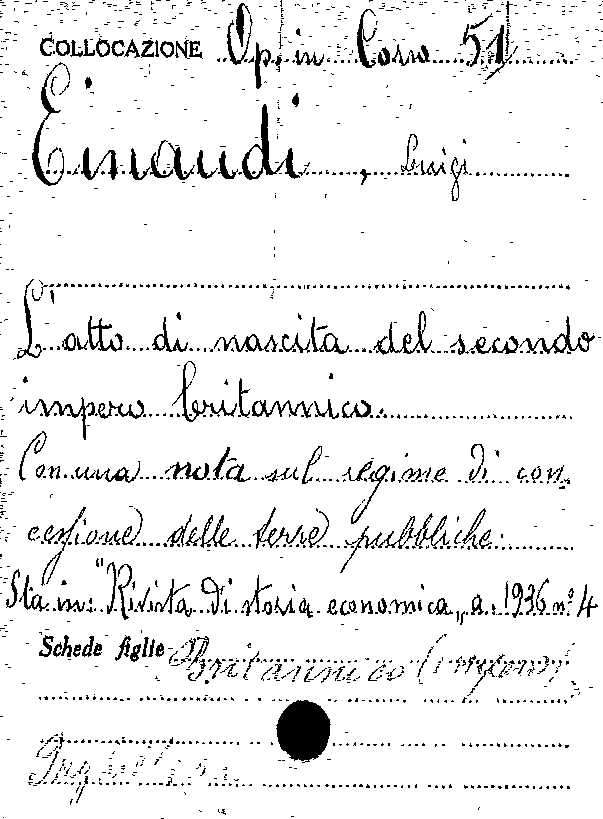 COLLOCAZIONE Op. in Corso 51
Einaudi, Luigi
L'atto di nascita del secondo
impero britannico.
Con una nota sul regime di con-
cessione delle terre pubbliche.
Sta in: "Rivista di storia economica" a. 1936 n.º 4
Schede figlie Britannico (impero)
Inghilterra